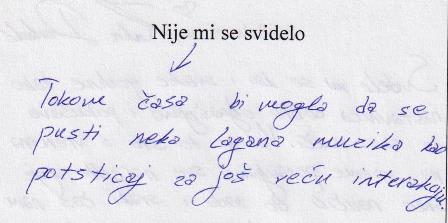 Nije mi se svidelo
Tokom časa bi mogla da se
pusti neka lagana muzika kao
potsticaj za još veću interakciju.